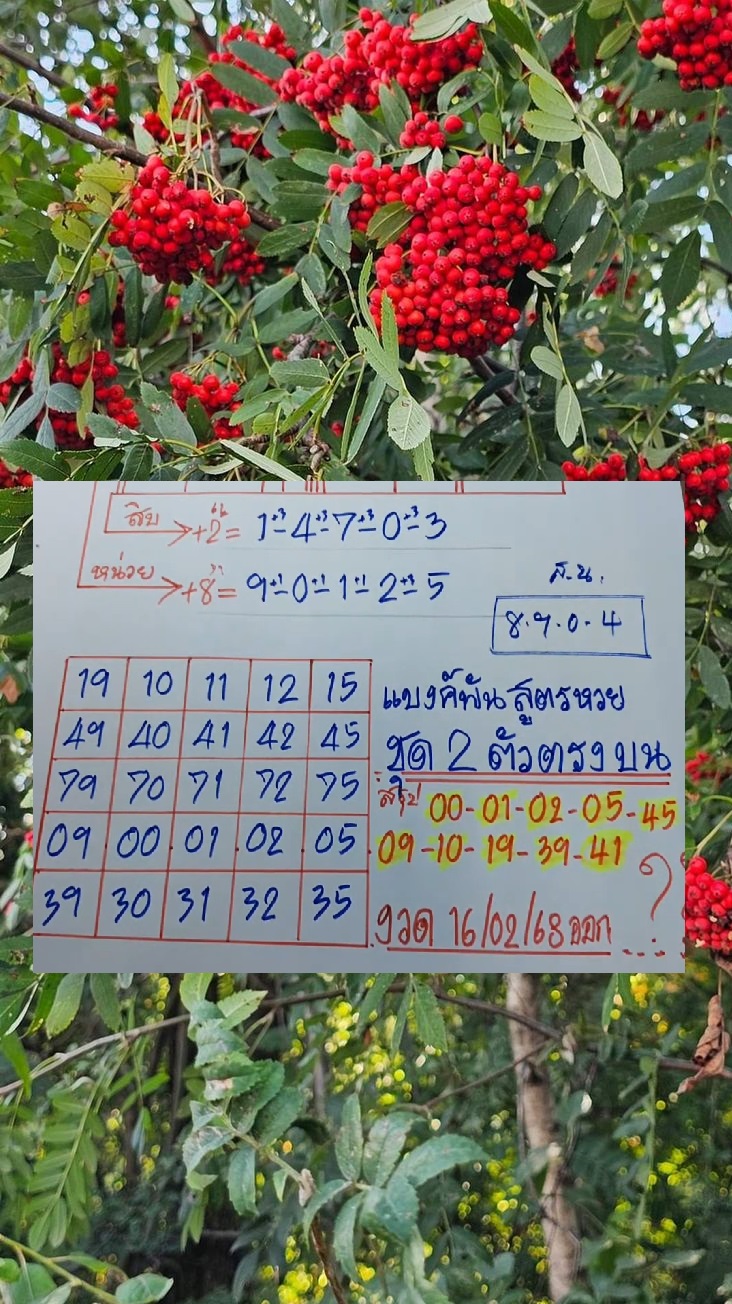 สิบ +2 = 1-4-7-0-3
หน่วย +8 = 9-0-1-2-5
ส.น.
8.9.0.4
19 10 11 12 15
49 40 41 42 45
79 70 71 72 75
09 00 01 02 05
39 30 31 32 35
แบงค์พัน สูตรหวย
ชุด 2 ตัวตรง บน
สรุป 00-01-02-05-45
09-10-19-39-41
งวด 16/02/68 ออก ...?